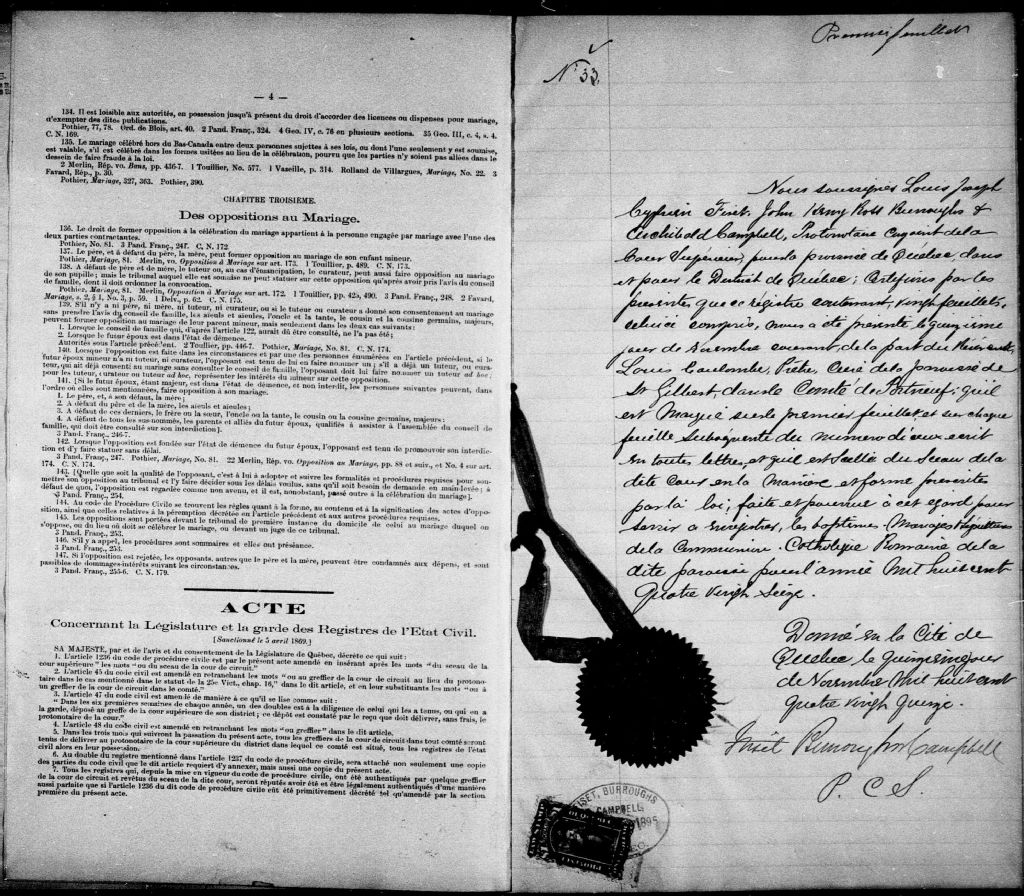 — 4 —
134. Il est loisible aux autorités, en possession jusqu'à présent du droit d'accorder des licences ou dispenses pour mariage,
d'exempter des dites publications.
Pothier, 77, 78. Ord. de Blois, art. 40. 2 Pand. Franç., 324. 4 Geo. IV, c. 76 en plusieurs sections. 35 Geo. III, c. 4, s. 4.
C. N. 169.
135. Le mariage célébré hors du Bas-Canada entre deux personnes sujettes à ses lois, ou dont l'une seulement y est soumise,
est valable, s'il est célébré dans les formes usitées au lieu de la célébration, pourvu que les parties n'y soient pas allées dans le
dessein de faire fraude à la loi.
2 Merlin, Rép. vo. Bans, pp. 436-7. 1 Touillier, No. 577. 1 Vazeille, p. 314. Rolland de Villargues, Mariage, No. 22. 3
Favard, Rép., p. 30.
Pothier, Mariage, 327, 363. Pothier, 390.
CHAPITRE TROISIEME.
Des oppositions au Mariage.
136. Le droit de former opposition à la célébration du mariage appartient à la personne engagée par mariage avec l'une des
deux parties contractantes.
Pothier, No. 81. 3 Pand. Franç., 247. C. N. 172.
137. Le père, et à défaut du père, la mère, peut former opposition au mariage de son enfant mineur.
Pothier, Mariage, 81. Merlin, vo. Opposition à Mariage sur art. 173. 1 Touillier, p. 489. C. N. 173.
138. A défaut de père et de mère, le tuteur ou, au cas d'émancipation, le curateur, peut aussi faire opposition au mariage
de son pupille; mais le tribunal auquel elle est soumise ne peut statuer sur cette opposition qu'après avoir pris l'avis du conseil
de famille, dont il doit ordonner la convocation.
Pothier, Mariage, 81. Merlin, Opposition à Mariage sur art. 172. 1 Touillier, pp. 425, 490. 3 Pand. Franç., 248. 2 Favard,
Mariage, s. 2, § 1, No. 3, p. 59. 1 Delv., p. 62. C. N. 175.
139. S'il n'y a ni père, ni mère, ni tuteur, ni curateur, ou si le tuteur ou curateur a donné son consentement au mariage
sans prendre l'avis du conseil de famille, les aïeuls et aïeules, l'oncle et la tante, le cousin et la cousine germains, majeurs,
peuvent former opposition au mariage de leur parent mineur, mais seulement dans les deux cas suivants:
1. Lorsque le conseil de famille qui, d'après l'article 122, aurait dû être consulté, ne l'a pas été;
2. Lorsque le futur époux est dans l'état de démence.
Autorités sous l'article précédent. 2 Toullier, pp. 446-7. Pothier, Mariage, No. 81. C. N. 174.
140. Lorsque l'opposition est faite dans les circonstances et par une des personnes énumérées en l'article précédent, si le
futur époux mineur n'a ni tuteur, ni curateur, l'opposant est tenu de lui en faire nommer un; s'il a déjà un tuteur, ou cura-
teur, qui ait déjà consenti au mariage sans consulter le conseil de famille, l'opposant doit lui faire nommer un tuteur ad hoc;
pour les tuteur, curateur ou tuteur ad hoc, représenter les intérêts du mineur sur cette opposition.
141. [Si le futur époux, étant majeur, est dans l'état de démence, et non interdit, les personnes suivantes peuvent, dans
l'ordre où elles sont mentionnées, faire opposition à son mariage.
1. Le père, et, à son défaut, la mère;
2. A défaut du père et de la mère, les aïeuls et aïeules;
3. A défaut de ces derniers, le frère ou la sœur, l'oncle ou la tante, le cousin ou la cousine germains, majeurs;
4. A défaut de tous les sus-nommés, les parents et alliés du futur époux, qualifiés à assister à l'assemblée du conseil de
famille, qui doit être consulté sur son interdiction].
3 Pand. Franç., 246-7.
142. Lorsque l'opposition est fondée sur l'état de démence du futur époux, l'opposant est tenu de promouvoir son interdic-
tion et d'y faire statuer sans délai.
3 Pand. Franç., 247. Pothier, Mariage, No. 81. 22 Merlin, Rép. vo. Opposition au Mariage, pp. 88 et suiv., et No. 4 sur art.
174. C. N. 174.
143. [Quelle que soit la qualité de l'opposant, c'est à lui à adopter et suivre les formalités et procédures requises pour sou-
mettre son opposition au tribunal et l'y faire décider sous les délais voulus, sans qu'il soit besoin de demande en main-levée; à
défaut de quoi, l'opposition est regardée comme non avenue, et il est, nonobstant, passé outre à la célébration du mariage].
3 Pand. Franç., 254.
144. Au code de Procédure Civile se trouvent les règles quant à la forme, au contenu et à la signification des actes d'oppo-
sition, ainsi que celles relatives à la péremption décrétée en l'article précédent et aux autres procédures requises.
145. Les oppositions sont portées devant le tribunal de première instance du domicile de celui au mariage duquel on
s'oppose, ou du lieu où doit se célébrer le mariage, ou devant un juge de ce tribunal.
3 Pand. Franç., 253.
146. S'il y a appel, les procédures sont sommaires et elles ont préséance.
3 Pand. Franç., 253.
147. Si l'opposition est rejetée, les opposants, autres que le père et la mère, peuvent être condamnés aux dépens, et sont
passibles de dommages-intérêts suivant les circonstances.
3 Pand. Franç., 255-6. C. N. 179.
ACTE
Concernant la Législature et la garde des Registres de l'Etat Civil.
[Sanctionné le 5 avril 1869.]
SA MAJESTE, par et de l'avis et du consentement de la Législature de Québec, décrète ce qui suit:
1. L'article 1236 du code de procédure civile est par le présent acte amendé en insérant après les mots "du sceau de la
cour supérieure" les mots "ou du sceau de la cour de circuit."
2. L'article 45 du code civil est amendé en retranchant les mots "ou au greffier de la cour de circuit au lieu du protono-
taire dans le cas mentionné dans le statut de la 25e Vict., chap. 16," dans le dit article, et en leur substituants les mots "ou à
un greffier de la cour de circuit dans le comté."
3. L'article 47 du code civil est amendé de manière à ce qu'il se lise comme suit:
"Dans les six premières semaines de chaque année, un des doubles est à la diligence de celui qui les a tenus, ou qui en a
la garde, déposé au greffe de la cour supérieure de son district; ce dépôt est constaté par le reçu que doit délivrer, sans frais, le
protonotaire de la cour."
4. L'article 48 du code civil est amendé en retranchant les mots "ou greffier" dans le dit article.
5. Dans les trois mois qui suivront la passation du présent acte, tous les greffiers de la cour de circuit dans tout comté seront
tenus de délivrer au protonotaire de la cour supérieure du district dans lequel ce comté est situé, tous les registres de l'état
civil alors en leur possession.
6. Au double du registre mentionné dans l'article 1237 du code de procédure civile, sera attaché non seulement une copie
des parties du code civil que le dit article requiert d'y annexer, mais aussi une copie du présent acte.
7. Tous les registres qui, depuis la mise en vigueur du code de procédure civile, ont été authentiqués par quelque greffier
de la cour de circuit et revêtus du sceau de la dite cour, seront réputés avoir été et être légalement authentiqués d'une manière
aussi parfaite que si l'article 1236 du dit code de procédure civile eût été primitivement décrété tel qu'amendé par la section
première du présent acte.
Premier feuillet
No 33
Nous soussignés Louis Joseph
Cyprien Fiset, John Henry Ross Burroughs &
Archibald Campbell, Protonotaire conjoint de la
Cour Supérieure, pour la province de Québec, dans
et pour le District de Québec; Certifions par les
présentes, que ce registre contenant, vingt feuillets,
celui ci compris, nous a été présenté le quinzième
jour de Novembre courant, de la part du Révérend
Louis Coulombe, Prêtre, Curé de la paroisse de
St Gilbert, dans le Comté de Portneuf; qu'il
est Marqué sur le premier feuillet et sur chaque
feuille Subséquente du numéro d'iceux écrit
en toutes lettres, et qu'il est Scellé du Sceau de la
dite Cour en la Manière et forme prescrites
par la loi; faite et pourvue à cet égard, pour
servir à enregistrer, les baptêmes Mariages Sépultures
de la Communion Catholique Romaine de la
dite paroisse pour l'année Mil huit cent
Quatre vingt Seize.
Donné en la Cité de
Québec, le quinzième jour
de Novembre Mil huit cent
quatre vingt Quinze.
Fiset Burroughs Campbell
P. C. S.
FISET, BURROUGHS
& CAMPBELL
1895
QUEBEC